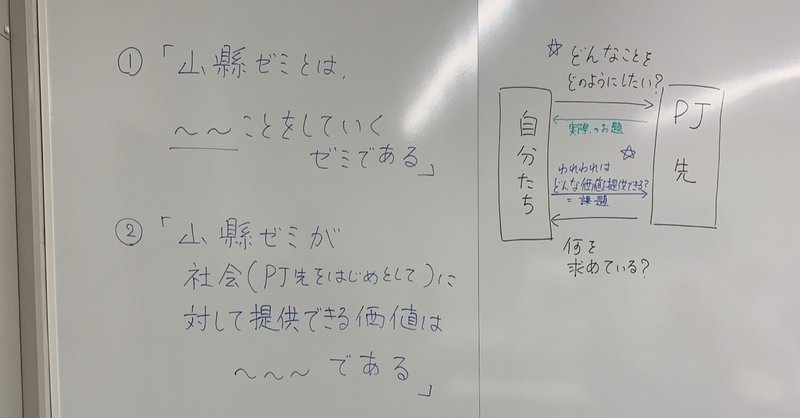 ① 「山縣ゼミとは、
〜〜ことをしていく
ゼミである」
② 「山縣ゼミが
社会(PJ先をはじめとして)に
対して提供できる価値は
〜〜〜である」
☆ どんなことを
どのようにしたい?
自分たち
PJ先
実際のお題
☆
われわれは
どんな価値を提供できる?
=課題
何を
求めている?